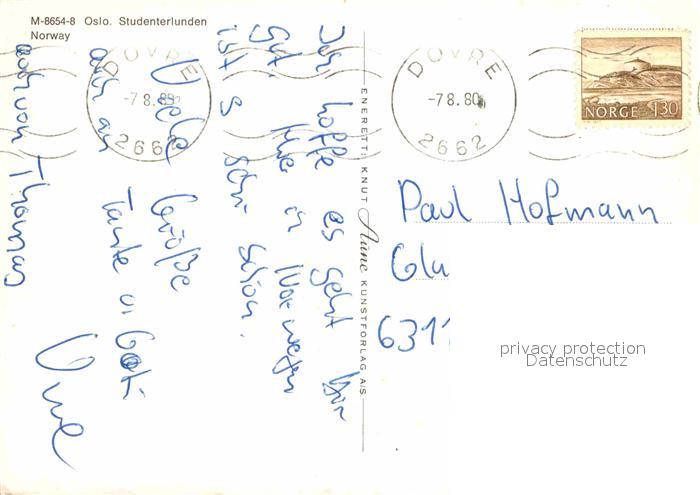 M-8654-8 Oslo. Studenterlunden
Norway
DOVRE
-7 8.80
2662
DOVRE
-7 8.80
2662
NORGE 130
ENERETT: KNUT Aune KUNSTFORLAG A/S
Ich hoffe es geht Dir
gut. Hier in Norwegen
ist es sehr schön.
Viele Grüße
auch an Tante
auch von Thomas
Uwe
Paul Hofmann
Gla
6311
privacy protection
Datenschutz